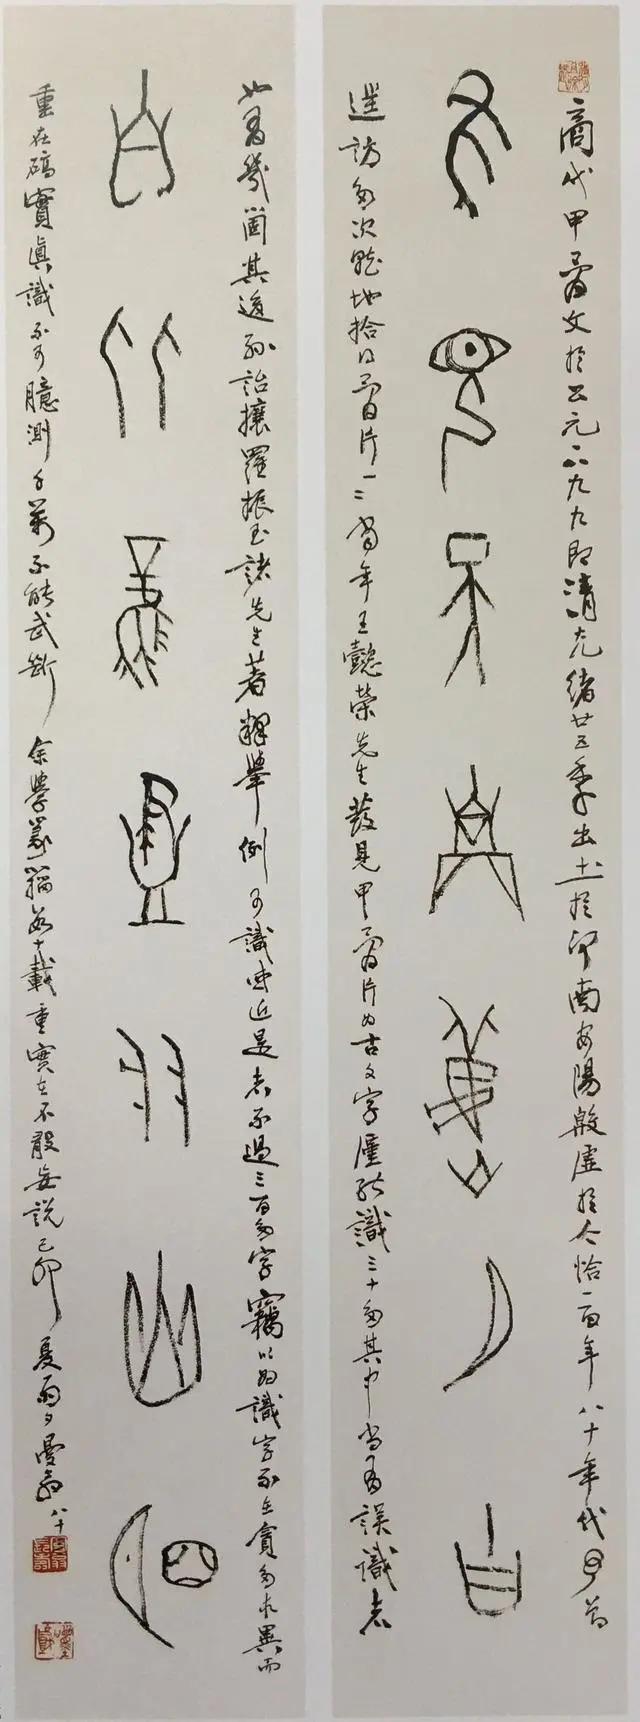 商代甲骨文於公元一八九九即清光緒廿五季出土於河南安陽殷虛於今恰一百年八十年代曾為
見天
訪多次就地拾得骨片一二當年王懿榮先生發見甲骨片為古文字僅能識三十多其中尚有誤識者
也有幾箇其後孫詒讓羅振玉諸先生著釋舉例可識或近是者不過三百多字竊以為識字不在貪多求異而
羽山明
重在碻實真識不可臆測千萬不能武斷余學篆籀數十載重實在不敢妄說己卯夏雨夕翁八十